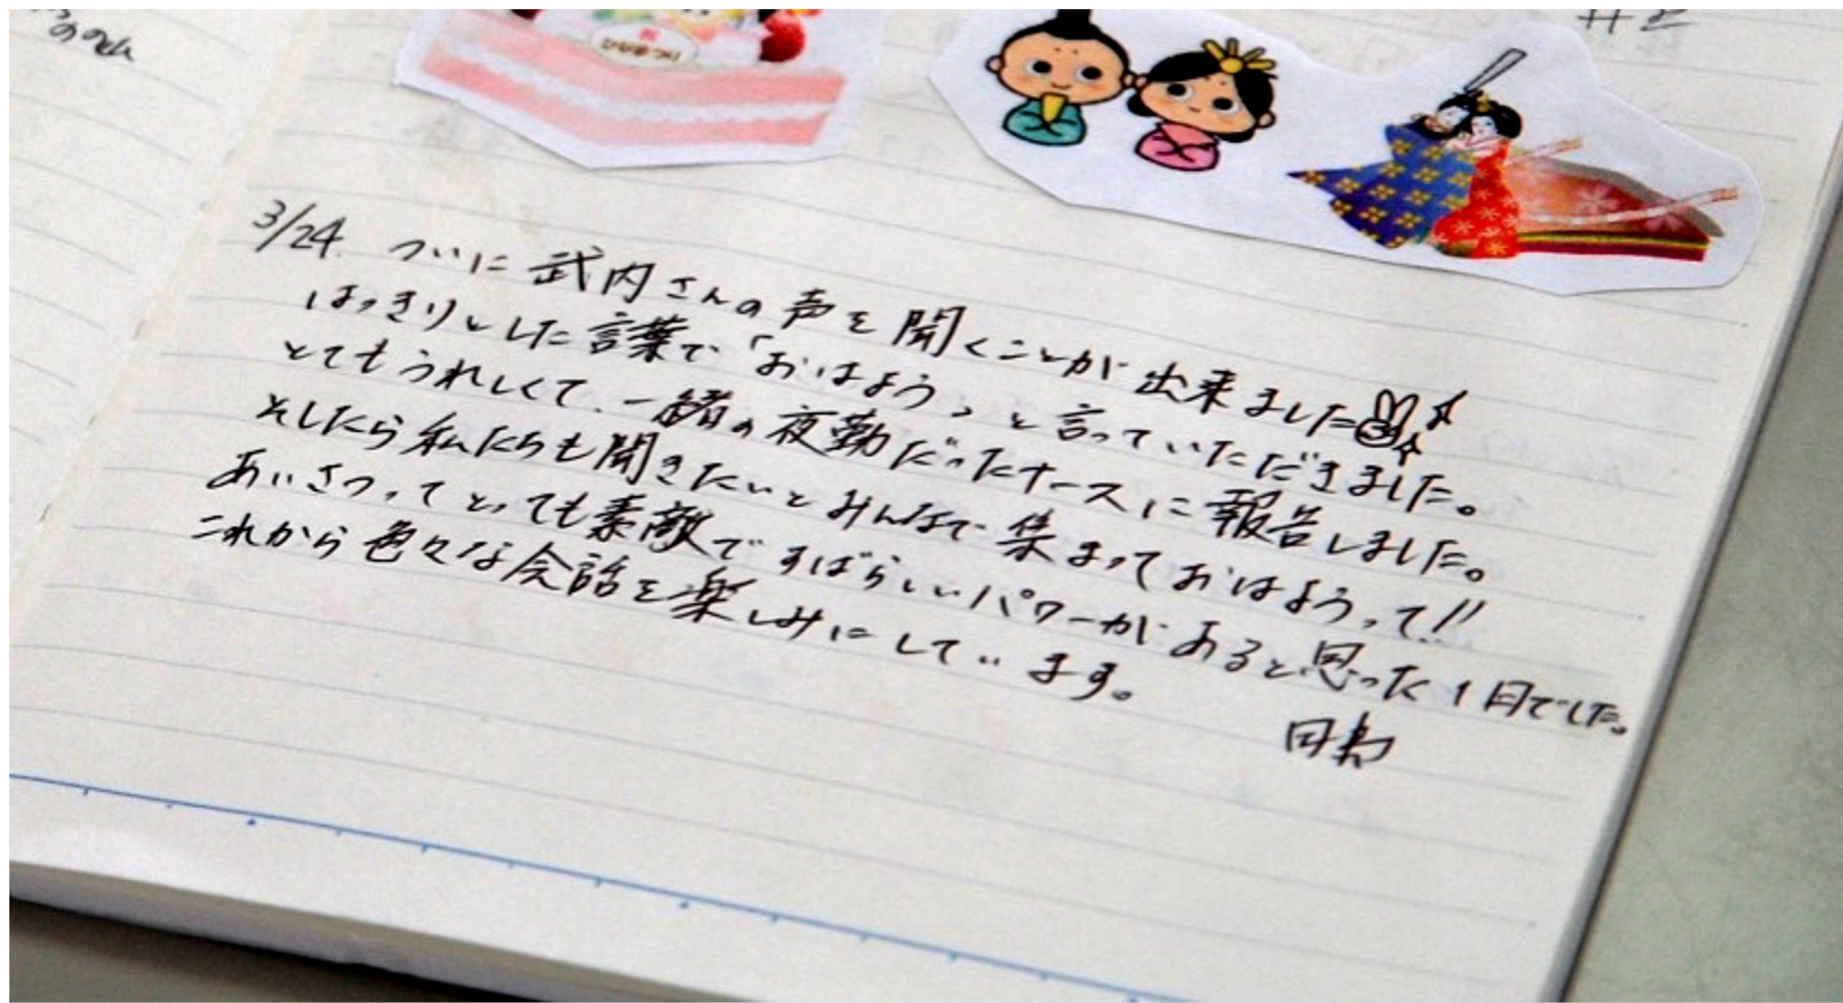 ひなまつり
3/24. ついに武内さんの声を聞くことが出来ました
はっきりとした言葉で「おはよう」と言っていただきました。
とてもうれしくて、一緒の夜勤だったナースに報告しました。
そしたら私たちも聞きたいとみんなで集まっておはようって!!
あいさつってとっても素敵ですばらしいパワーがあると思った1日でした。
これから色々な会話を楽しみにしています。